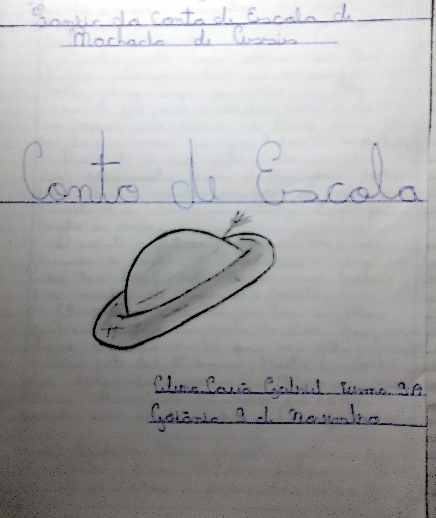 da Conto de Escola de
Machado de Assis
Conto de Escola
Cauã Gabriel turma
Goiânia de Novembro